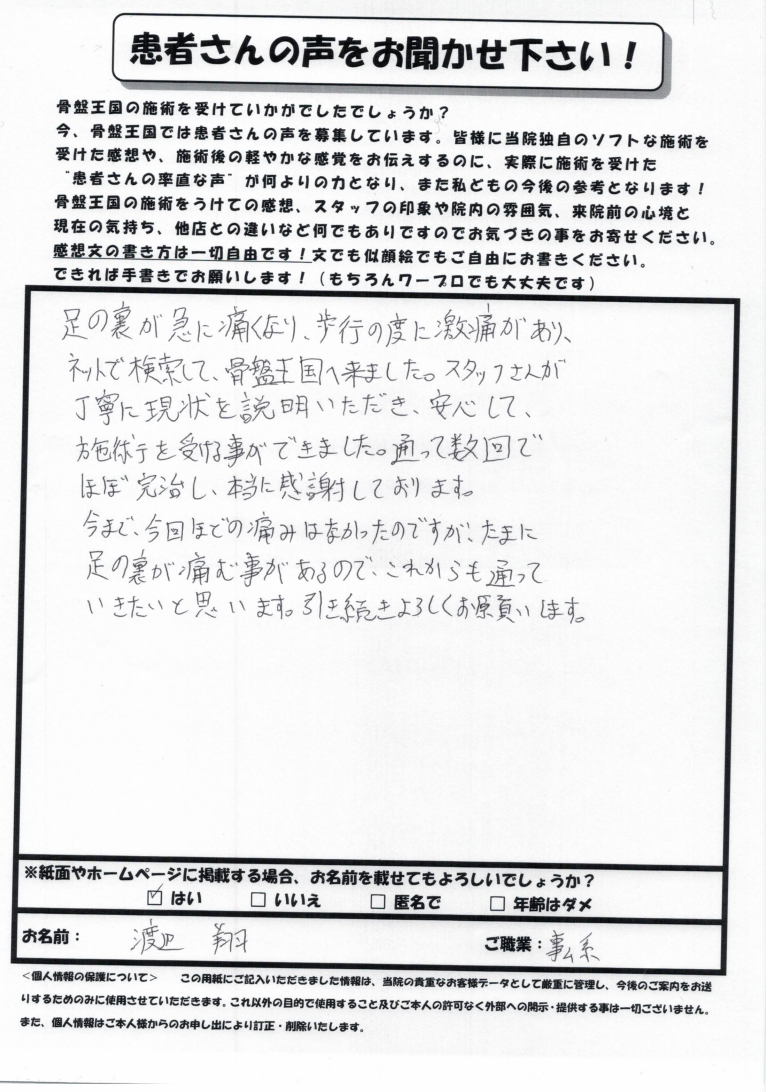 患者さんの声をお聞かせ下さい！
骨盤王国の施術を受けていかがでしたでしょうか？
今、骨盤王国では患者さんの声を募集しています。皆様に当院独自のソフトな施術を
受けた感想や、施術後の軽やかな感覚をお伝えするのに、実際に施術を受けた
“患者さんの率直な声”が何よりの力となり、また私どもの今後の参考となります！
骨盤王国の施術をうけての感想、スタッフの印象や院内の雰囲気、来院前の心境と
現在の気持ち、他店との違いなど何でもありですのでお気づきの事をお寄せください。
感想文の書き方は一切自由です！文でも似顔絵でもご自由にお書きください。
できれば手書きでお願いします！（もちろんワープロでも大丈夫です）
足の裏が急に痛くなり、歩行の度に激痛があり、
ネットで検索して、骨盤王国へ来ました。スタッフさんが
丁寧に現状を説明いただき、安心して、
施術を受ける事ができました。通って数回で
ほぼ完治し、本当に感謝しております。
今まで、今回ほどの痛みはなかったのですが、たまに
足の裏が痛む事があるので、これからも通って
いきたいと思います。引き続きよろしくお願いします。
※紙面やホームページに掲載する場合、お名前を載せてもよろしいでしょうか？
☑ はい □ いいえ □ 匿名で □ 年齢はダメ
お名前： 渡辺 翔 ご職業：事ム系
＜個人情報の保護について＞ この用紙にご記入いただきました情報は、当院の貴重なお客様データとして厳重に管理し、今後のご案内をお送
りするためのみに使用させていただきます。これ以外の目的で使用すること及びご本人の許可なく外部への開示・提供する事は一切ございません。
また、個人情報はご本人様からのお申し出により訂正・削除いたします。